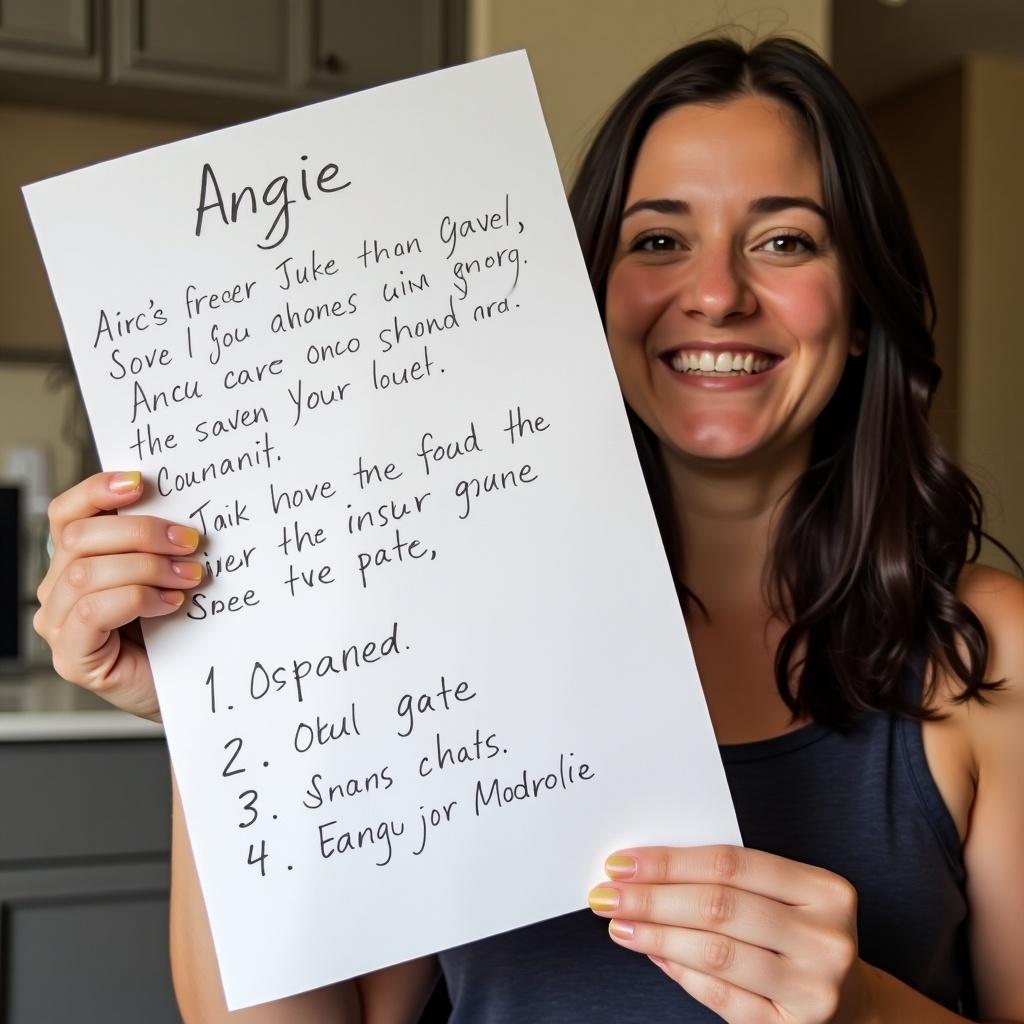 Angie
Airc's freeer Juke than Gavel,
Sove I gou ahones uin gnorg.
Ancu care onco shond nrd.
the saven Your louet.
Counanit.
Taik hove the foud the
iver the insur grune
Spee tve pate,
1. Ospaned.
2. Okul gate
3. Snans chats.
4. Eangu jor Modrolie